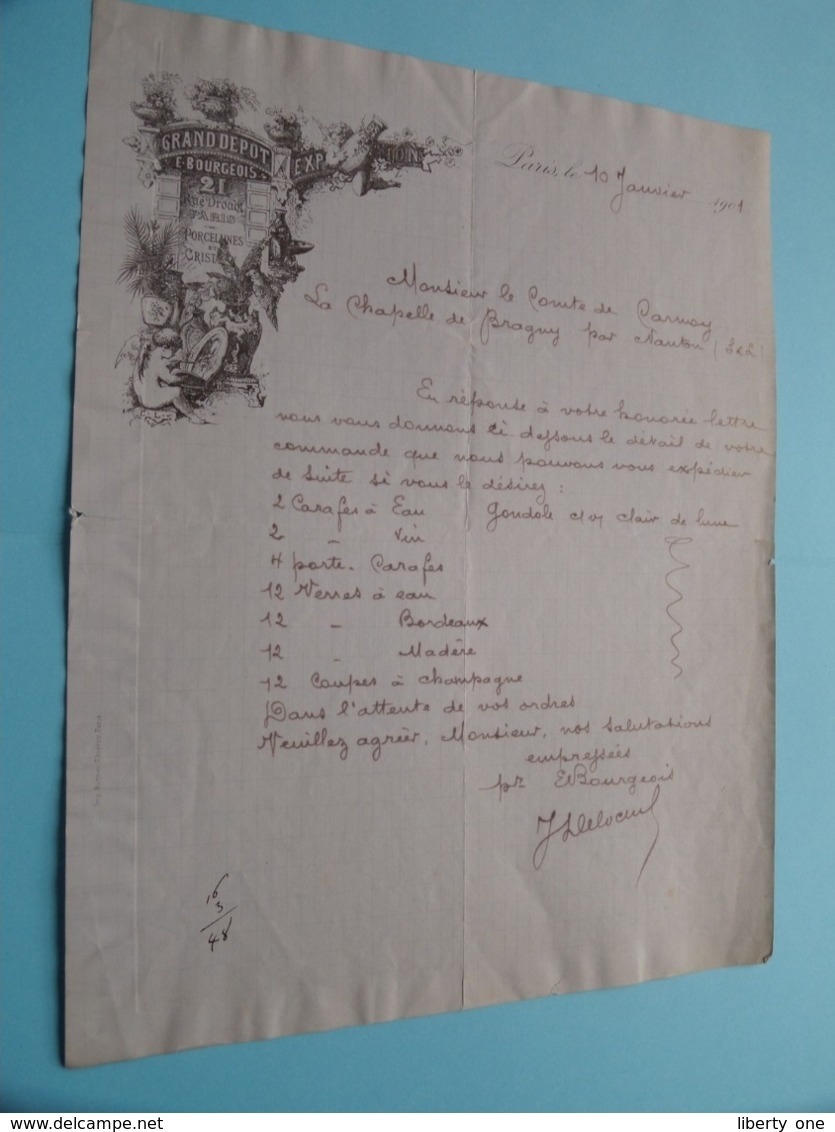 GRAND DEPOT
E. BOURGEOIS
21
Rue Drouot
PARIS
PORCELAINES
CRIST
EXP TION
Paris, le 10 Janvier 1901
Monsieur le Comte de Carmoy
La Chapelle de Bragny par Nanton (S&L)
En réponse à votre honorée lettre
nous vous donnons ci dessous le détail de votre
commande que nous pouvons vous expédier
de suite si vous le désirez :
2 Carafes à Eau Gondole clair de lune
2 - Vin
4 porte-Carafes
12 Verres à eau
12 - Bordeaux
12 - Madère
12 Coupes à champagne
Dans l'attente de vos ordres
Veuillez agréer, Monsieur, nos salutations
empressées
pr EBourgeois
16
3
48
delcampe.net
liberty one